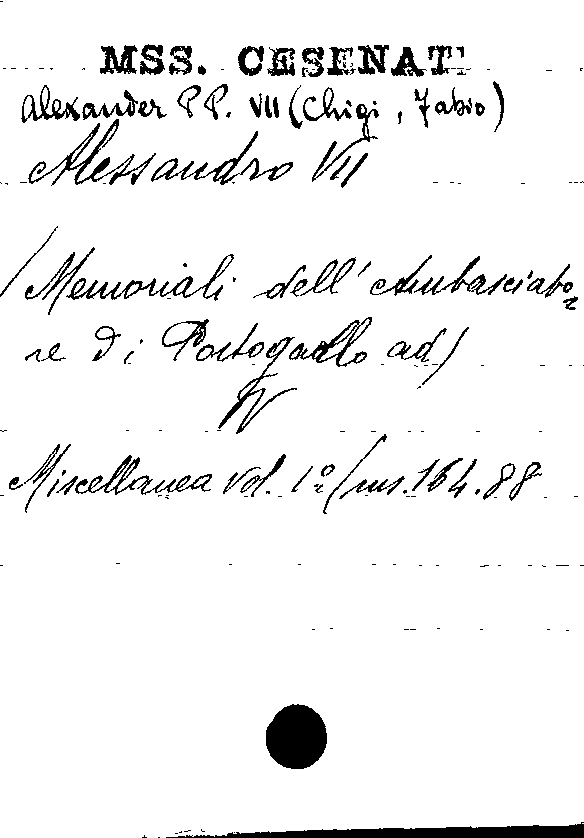 MSS. CESENATI
Alexander PP. VII (Chigi, Fabio)
Alessandro VII
(Memoriali dell'Ambasciato-
re di Portogallo ad)
V
Miscellanea vol. 1º (ms. 164.88